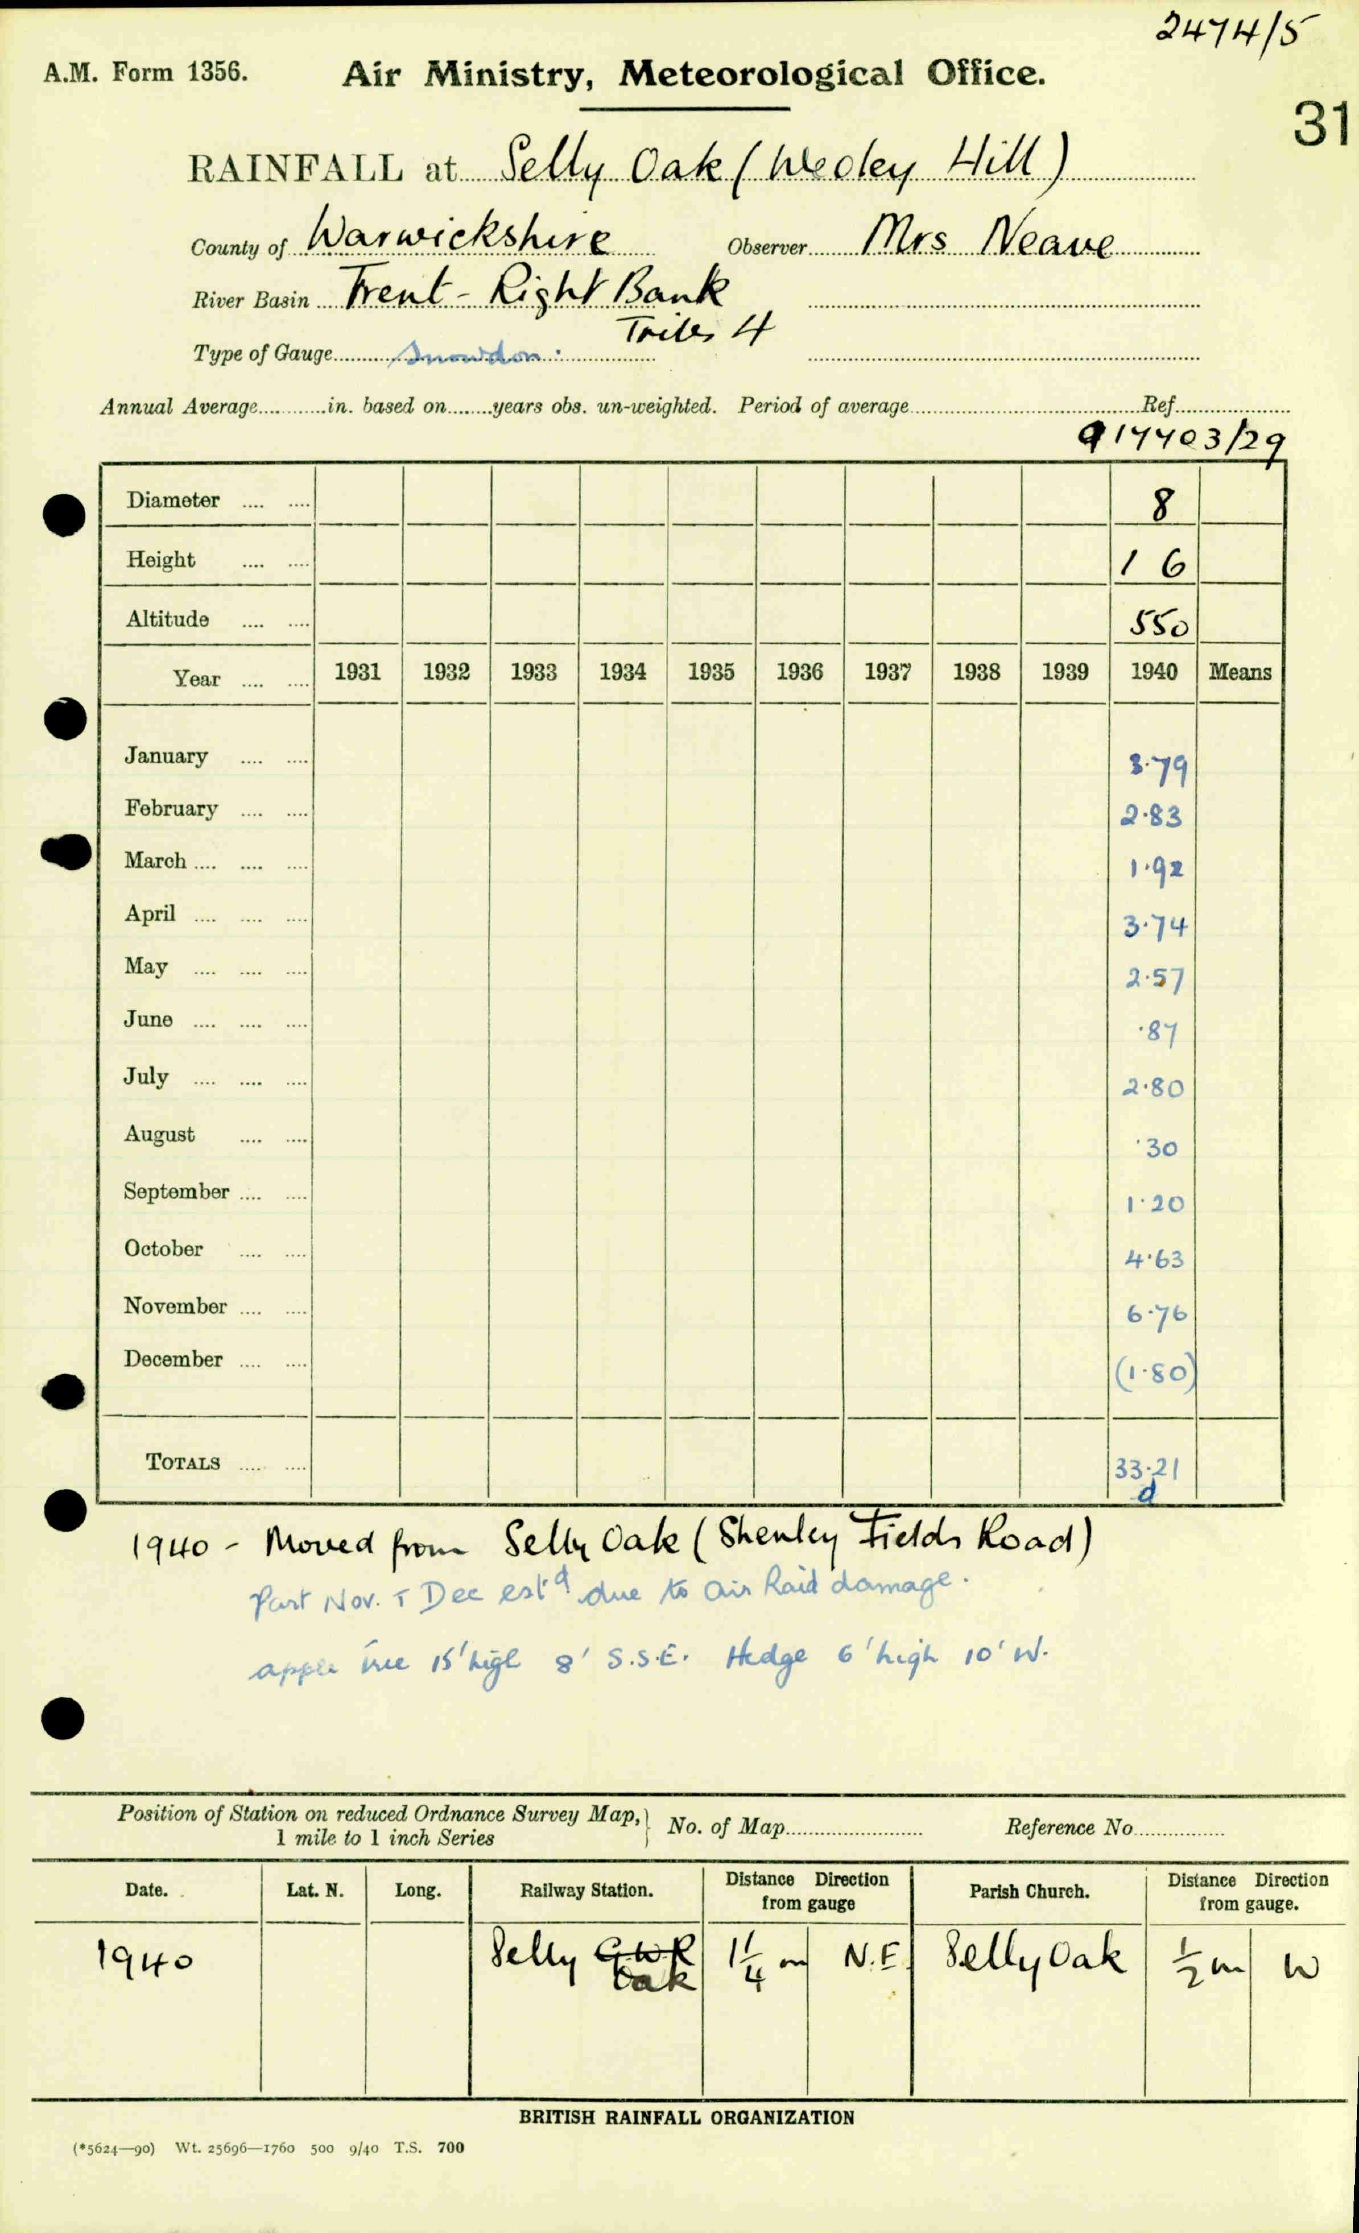 2474/5
A.M. Form 1356. Air Ministry, Meteorological Office.
31
RAINFALL at Selly Oak (Weoley Hill)
County of Warwickshire Observer Mrs Neave
River Basin Trent - Right Bank
Tribs 4
Type of Gauge Snowdon.
Annual Average in. based on years obs. un-weighted. Period of average Ref
917403/29
Diameter 8
Height 1 6
Altitude 550
Year 1931 1932 1933 1934 1935 1936 1937 1938 1939 1940 Means
January 3.79
February 2.83
March 1.92
April 3.74
May 2.57
June .87
July 2.80
August .30
September 1.20
October 4.63
November 6.76
December (1.80)
TOTALS 33.21
d
1940 - Moved from Selly Oak (Shenley Fields Road)
Part Nov. + Dec estd due to Air Raid damage.
apple tree 15' high 8' S.S.E. Hedge 6' high 10' W.
Position of Station on reduced Ordnance Survey Map, 1 mile to 1 inch Series } No. of Map Reference No
Date. Lat. N. Long. Railway Station. Distance Direction from gauge Parish Church. Distance Direction from gauge.
1940 Selly G.W.R Oak 1 1/4 m N.E. Selly Oak 1/2 m W
BRITISH RAINFALL ORGANIZATION
(*5624—90) Wt. 25696—1760 500 9/40 T.S. 700